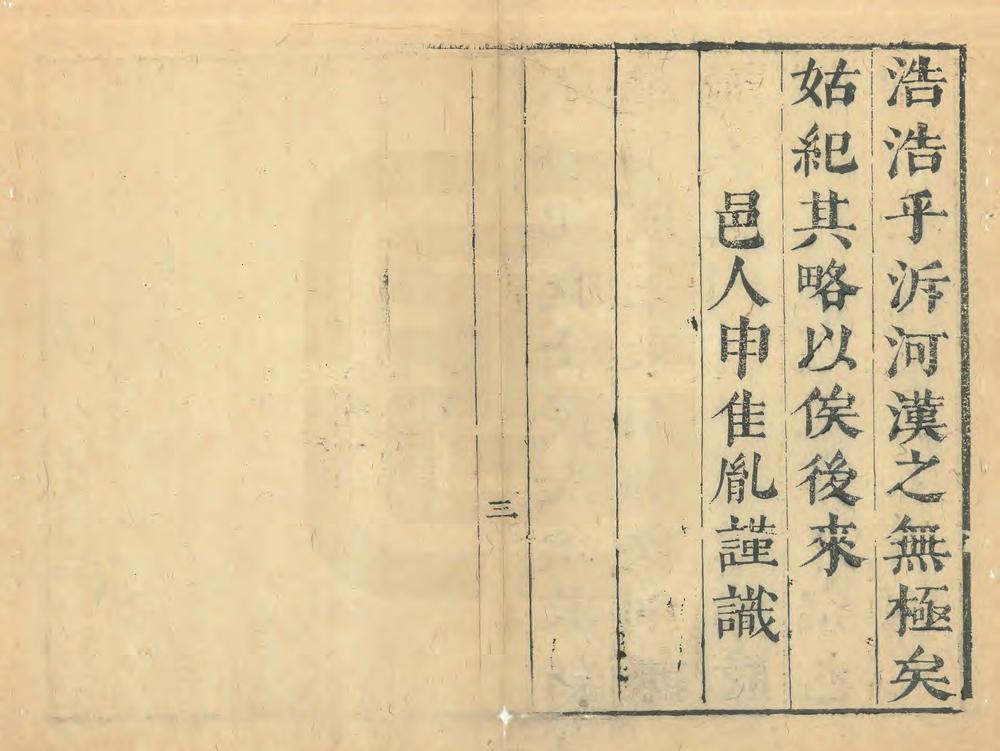 浩浩乎泝河漢之無極矣
姑紀其略以俟後來
邑人申佳胤謹識
三